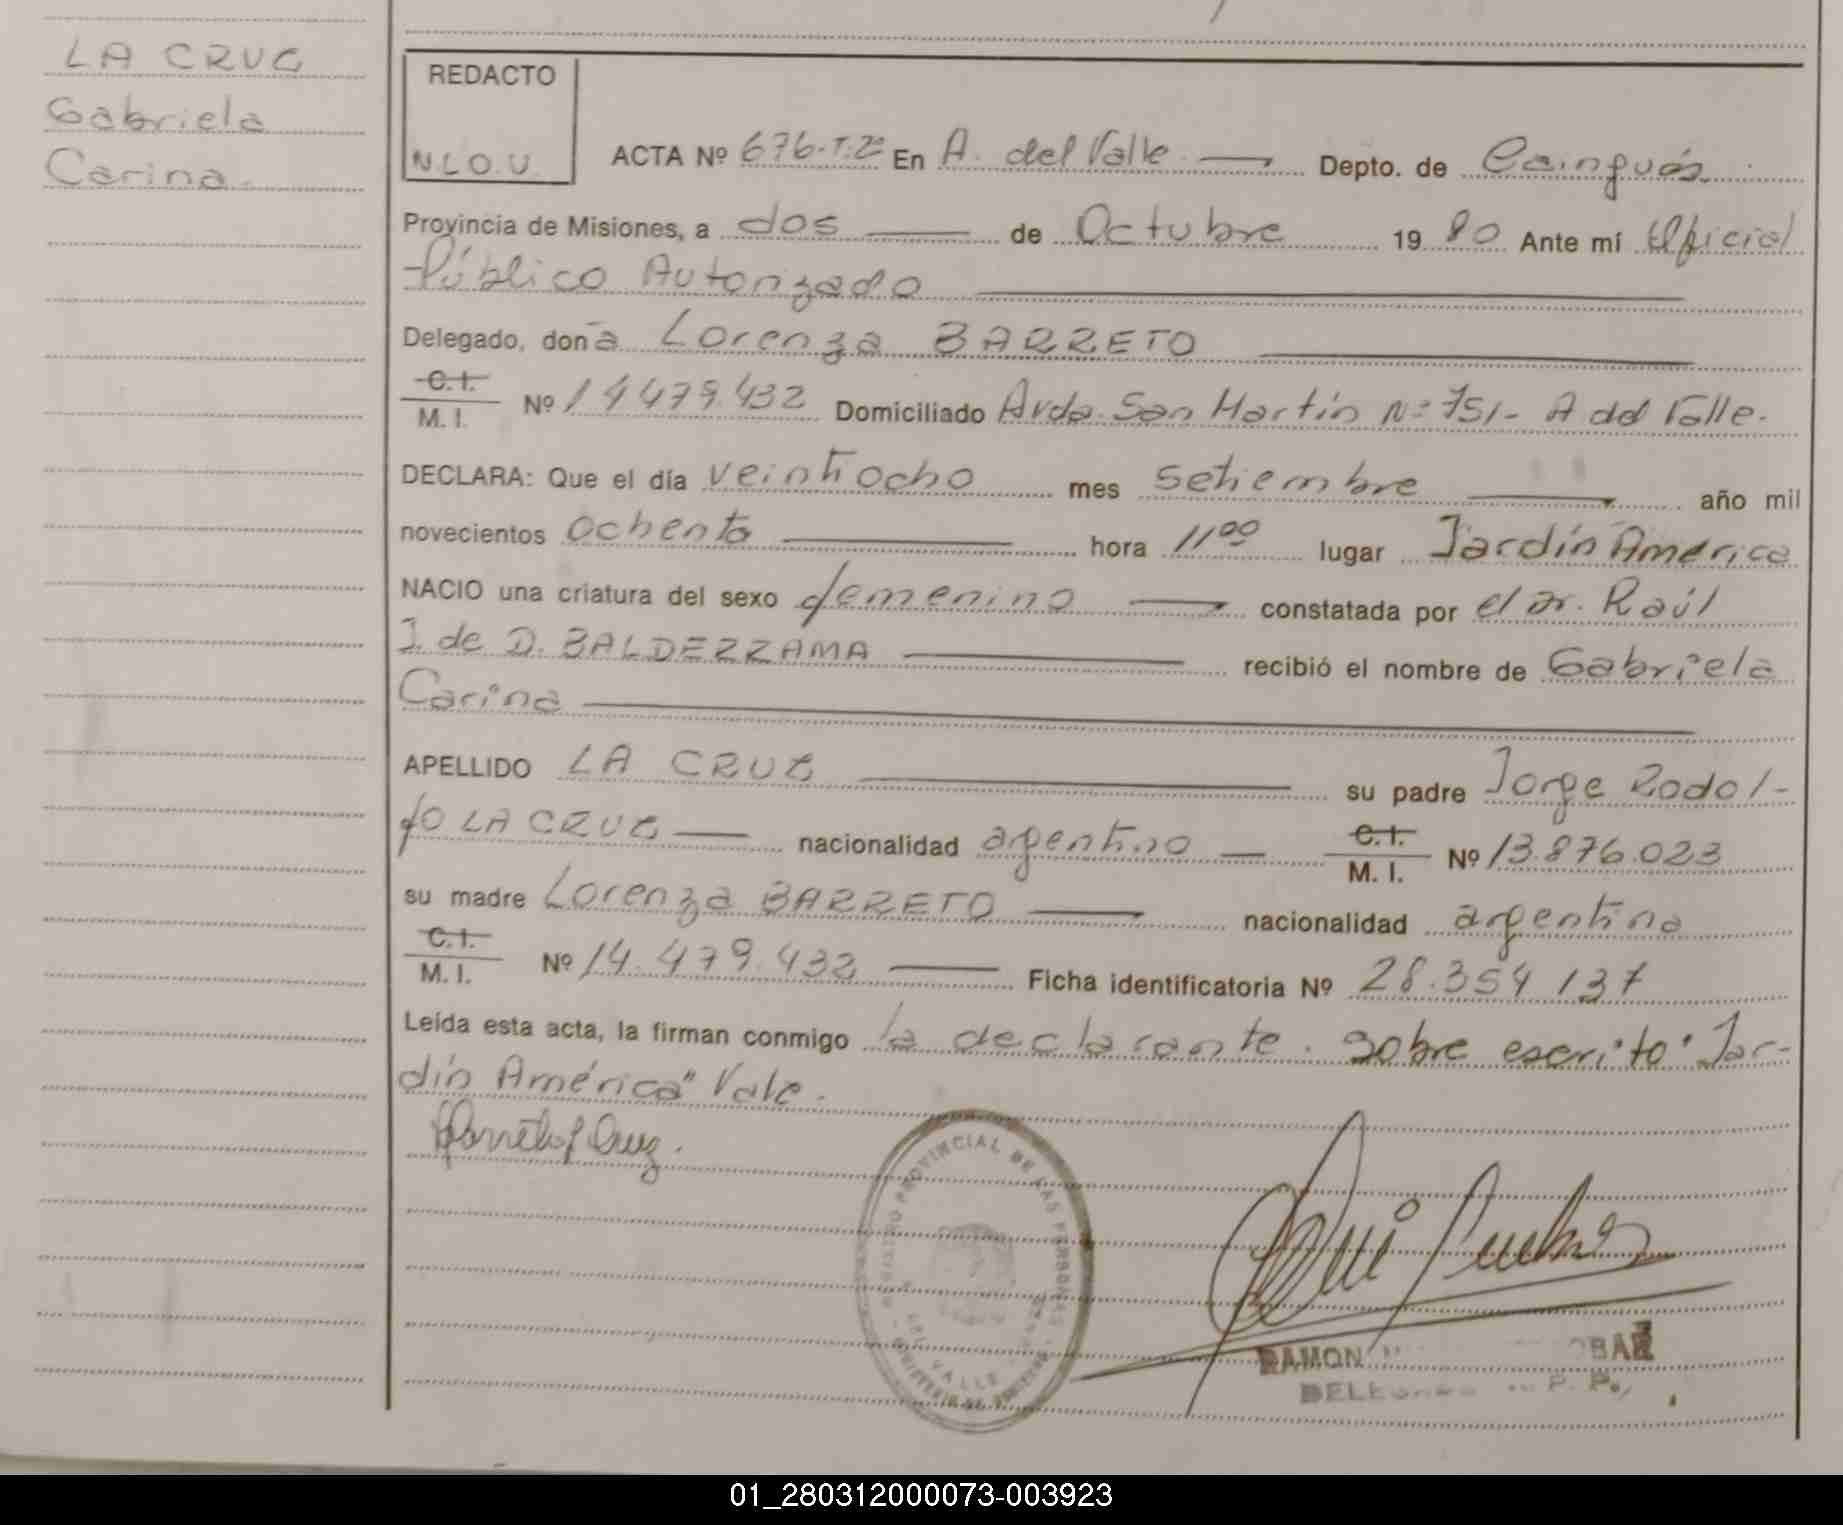 LA CRUG
Gabriela
Carina.
REDACTO
N.L.O.U.
ACTA Nº 676-T.2º En A. del Valle Depto. de Cainguás.
Provincia de Misiones, a dos de Octubre 19 80 Ante mí Oficial
Público Autorizado
Delegado, don a Lorenza BARRETO
C.I. / M. I. Nº 14479.432 Domiciliado Avda. San Martín Nº 751- A del Valle.
DECLARA: Que el día veintiocho mes setiembre año mil
novecientos ochenta hora 11 00 lugar Jardín América
NACIO una criatura del sexo femenino constatada por el Dr. Raúl
J. de D. BALDEZZAMA recibió el nombre de Gabriela
Carina
APELLIDO LA CRUG su padre Jorge Rodol-
fo LA CRUG nacionalidad argentino C.I. / M. I. Nº 13.876.023
su madre Lorenza BARRETO nacionalidad argentina
C.I. / M. I. Nº 14.479.432 Ficha identificatoria Nº 28.354 137
Leída esta acta, la firman conmigo la declarante. Sobre escrito "Jar-
dín América" Vale.
PROVINCIAL DE LAS PERSONAS
DEL VALLE
RAMON
01_280312000073-003923